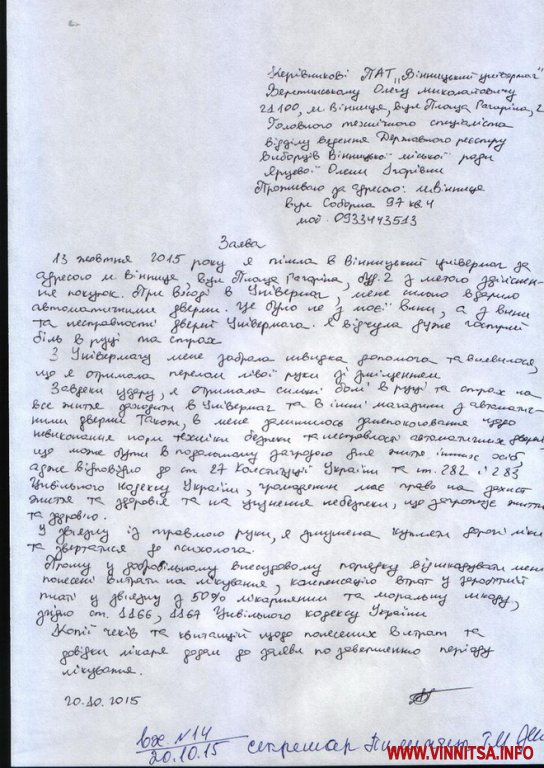 Керівникові ПАТ „Вінницький універмаг"
Веретинському Олегу Миколайовичу
21100, м. Вінниця, вул. Площа Гагаріна, 2
Головного технічного спеціаліста
відділу ведення Державного реєстру
виборців Вінницької міської ради
Ярцевої Олени Ігорівни
Проживаю за адресою: м. Вінниця
вул Соборна 97 кв. 4
моб. 0933443513
Заява
13 жовтня 2015 року я пішла в Вінницький універмаг за
адресою м. Вінниця, вул. Площа Гагаріна, буд. 2 з метою здійснен-
ня покупок. При вході в Універмаг, мене сильно вдарило
автоматичними дверми. Це було не з моєї вини, а з вини
та несправності дверей Універмага. Я відчула дуже гострий
біль в руці та страх.
З Універмагу мене забрала швидка допомога та виявилося,
що я отримала перелом лівої руки зі зміщенням.
Завдяки удару, я отримала сильні болі в руці та страх на
все життя заходити в Універмаг та в інші магазини з автоматич-
ними дверми. Також, в мене залишилось занепокоєння щодо
невиконання норм техніки безпеки та несправності автоматичних дверей,
що може бути в подальшому загрозою для життя інших осіб,
адже відповідно до ст. 27 Конституції України та ст. 282 і 283
Цивільного кодексу України, громадянин має право на захист
життя та здоров'я та на усунення небезпеки, що загрожує життю
та здоров'ю.
У зв'язку із травмою руки, я змушена купляти дорогі ліки
та звертатися до психолога.
Прошу у добровільному внесудовому порядку відшкодувати мені
понесені витрати на лікування, компенсацію втрат у заробітній
платі у зв'язку з 50% лікарняним та моральну шкоду,
згідно ст. 1166, 1167 Цивільного кодексу України
Копії чеків та квитанцій щодо понесених витрат та
довідки лікаря додам до заяви по завершенню періоду
лікування.
20.10.2015
вх. N 14
20.10.15 секретар
WWW.VINNITSA.INFO